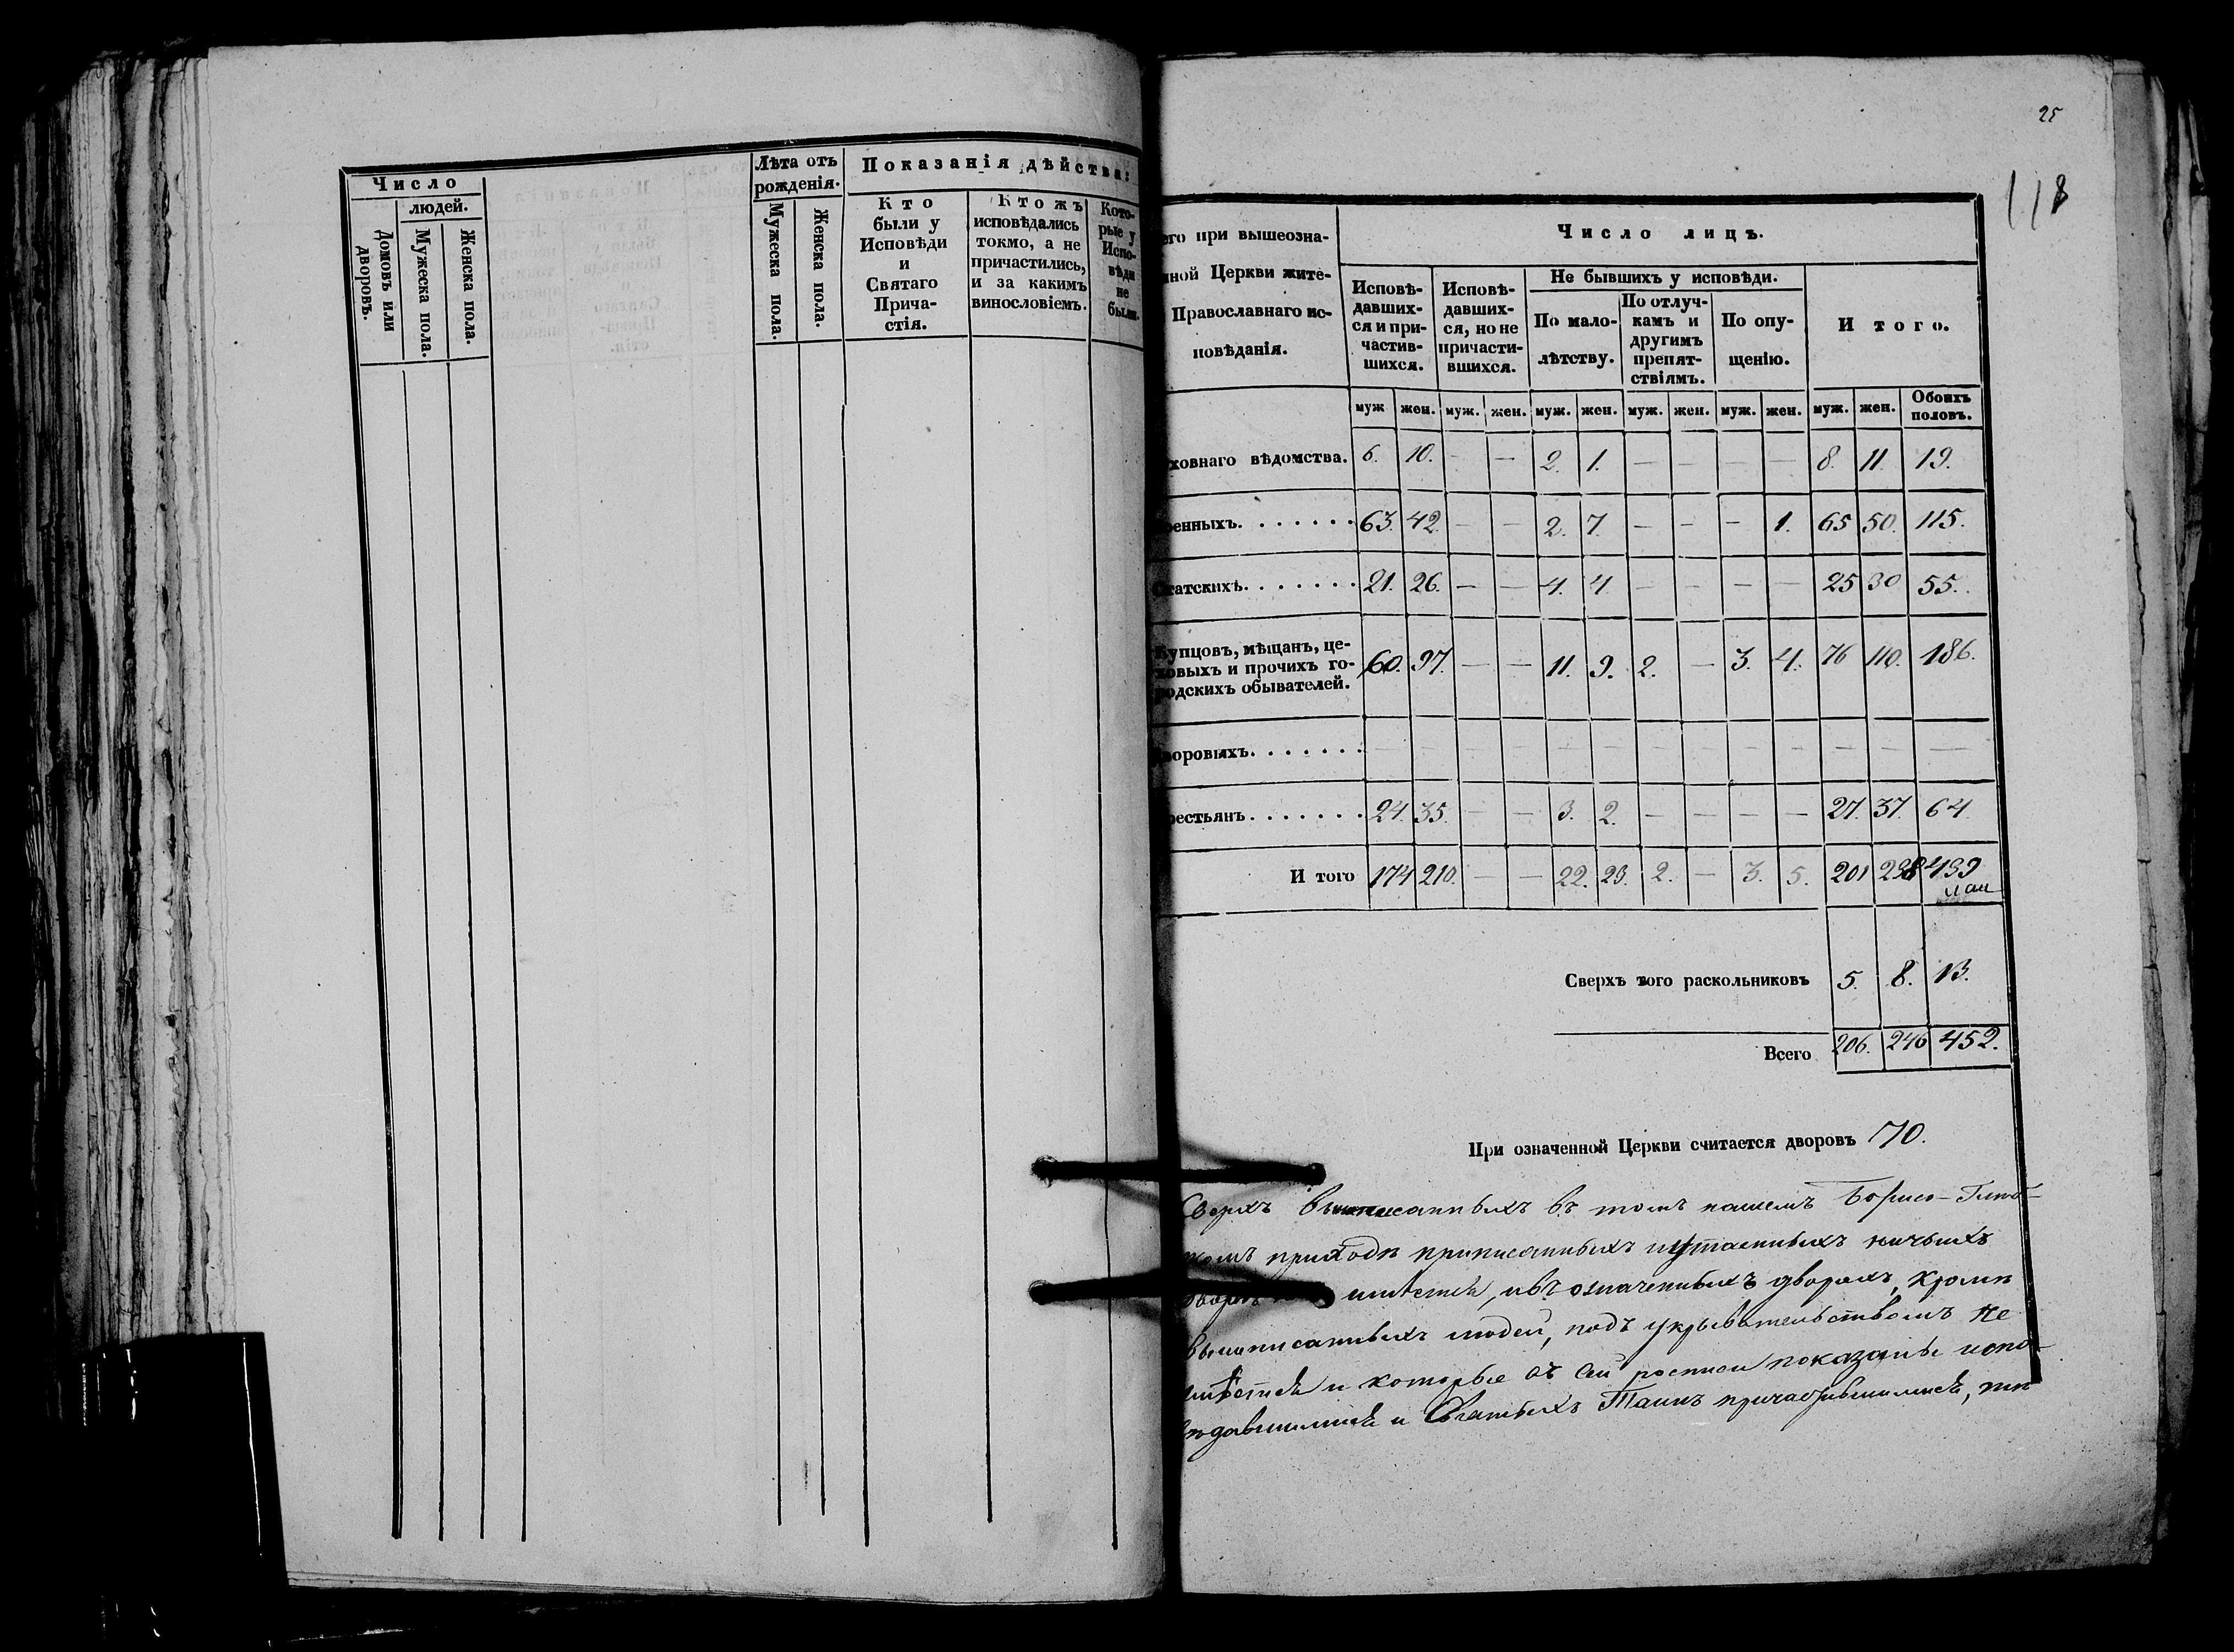 Число
людей.
Домовъ или дворовъ.
Мужеска пола.
Женска пола.
Лѣта отъ
рожденія.
Мужеска пола.
Женска пола.
Показанія дѣйства:
Кто
были у
Исповѣди
и
Святаго
Прича-
стія.
Ктожъ
исповѣдались
токмо, а не
причастились,
и за какимъ
винословіемъ.
Кото-
рые у
Испо-
вѣди
не
были.
25
118
его при вышеозна-
нной Церкви жите-
Православнаго ис-
повѣданія.
Число лицъ.
Исповѣ-
давших-
ся и при-
частив-
шихся.
Исповѣ-
давших-
ся, но не
причасти-
вшихся.
Не бывшихъ у исповѣди.
По мало-
лѣтству.
По отлуч-
камъ и
другимъ
препят-
ствіямъ.
По опу-
щенію.
И того.
муж жен. муж. жен. муж. жен. муж. жен. муж. жен. муж. жен. Обоихъ половъ.
ховнаго вѣдомства. 6. 10. — — 2. 1. — — — — 8. 11. 19.
оенныхъ. . . . . . . 63. 42. — — 2. 7. — — — 1. 65 50. 115.
Статскихъ. . . . . . . 21. 26. — — 4. 4. — — — — 25 30 55.
Купцовъ, мѣщанъ, це-
ховыхъ и прочихъ го-
родскихъ обывателей. 60. 97. — — 11. 9. 2. — 3. 4. 76 110. 186.
воровыхъ. . . . . . . — — — — — — — — — — — — —
рестьянъ. . . . . . . 24. 35. — — 3. 2. — — — — 27. 37. 64
И того 174 210. — — 22. 23. 2. — 3. 5. 201 238 439
Сверхъ того раскольниковъ 5. 8. 13.
Всего 206. 246 452.
При означенной Церкви считается дворовъ 70.
Сверхъ вышписанныхъ въ томъ нашемъ Борисо-Глѣб-
комъ приходѣ приписанныхъ и утаенныхъ ничьихъ
имѣется, и въ означенныхъ дворахъ, кромѣ
вышписанныхъ людей, подъ укрывательствомъ не
имѣется и которые въ сей росписи показаны испо-
вѣдавшимися и Святыхъ Таинъ причастившимися, тѣ